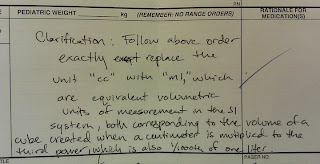 RN
PEDIATRIC WEIGHT kg (REMEMBER: NO RANGE ORDERS) RATIONALE FOR MEDICATION(S)
Clarification: Follow above order
exactly except replace the
unit "cc" with "ml," which
are equivalent volumetric
units of measurement in the SI
system, both corresponding to the volume of a
cube created when a centimeter is mutiplied to the
third power, which is also 1/1000th of one liter.
TITLE PAGER NO.